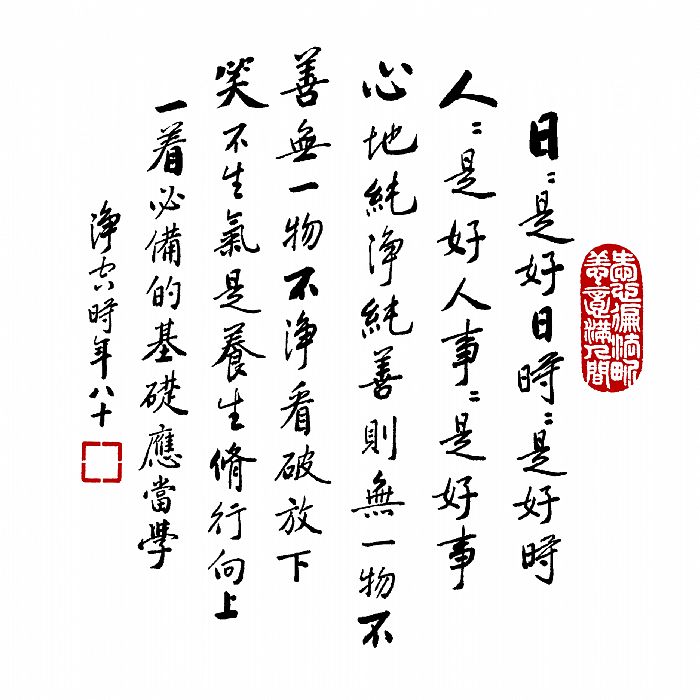 愛心遍法界
善意滿人間
日〻是好日時〻是好時
人〻是好人事〻是好事
心地純淨純善則無一物不
善無一物不淨看破放下
笑不生氣是養生脩行向上
一着必備的基礎應當學
淨空時年八十